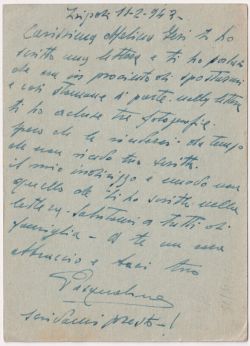 Tripoli 11-2-943-
Carissima Ieri ti ho
scritto una lettera e ti ho
che ero in procinto di spostarmi
e così stamane si parte. nella lettera
ti ho accluso tre fotografie
spero che le da tempo
che non ricevo tuo scritto.
il mio indirizzo e
quello che ti ho scritto nella
lettera. Salutami a tutti di
famiglia - A te un caro
abbraccio e baci tuo
Pasqualino
scrivimi presto-!